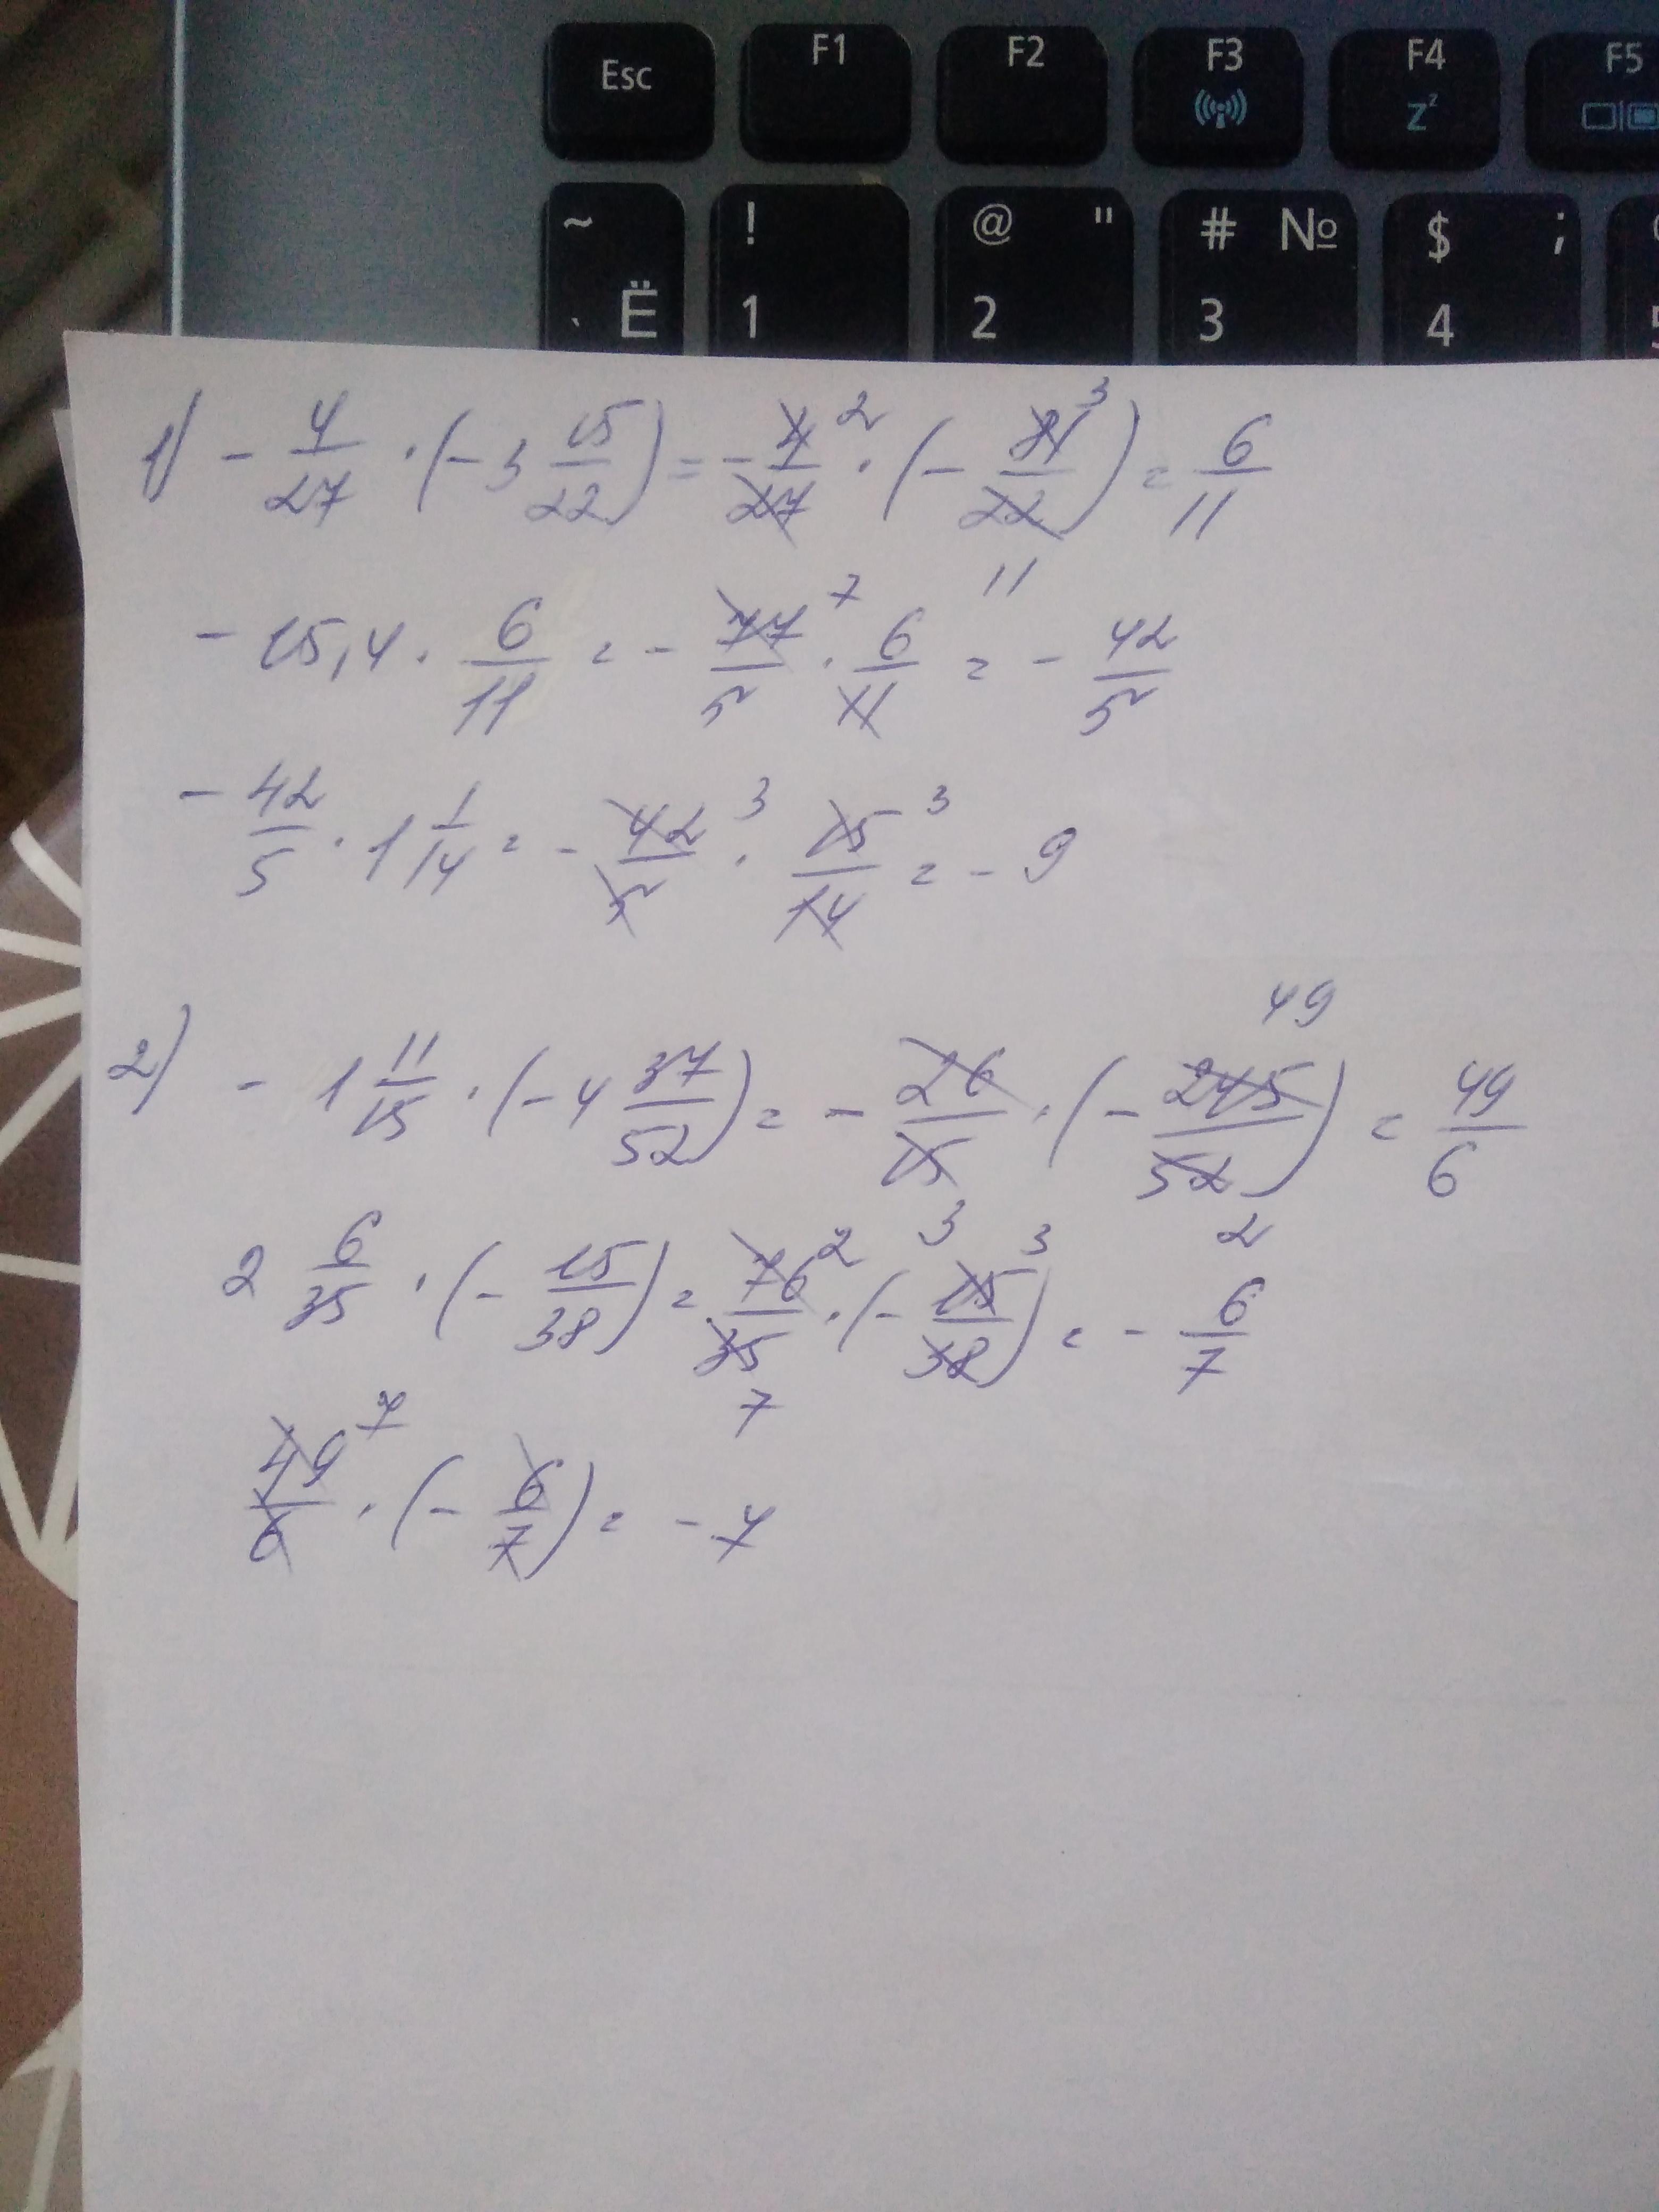 Esc F1 F2 F3 F4 F5
~ ` Ё ! 1 @ " 2 # № 3 $ ; 4 5
1) - 4/27 · (-3 15/22) = - 4/27 2 · (- 81/22 3) = 6/11
11
- 15,4 · 6/11 = - 77/5 7 · 6/11 = - 42/5
- 42/5 · 1 1/14 = - 42/5 3 · 15/14 3 = - 9
49
2) - 1 11/15 · (-4 37/52) = - 26/15 · (- 245/52) = 49/6
3 2
2 6/35 · (- 15/38) = 76/35 2 · (- 15/38 3) = - 6/7
7
49/6 7 · (- 6/7) = - 7